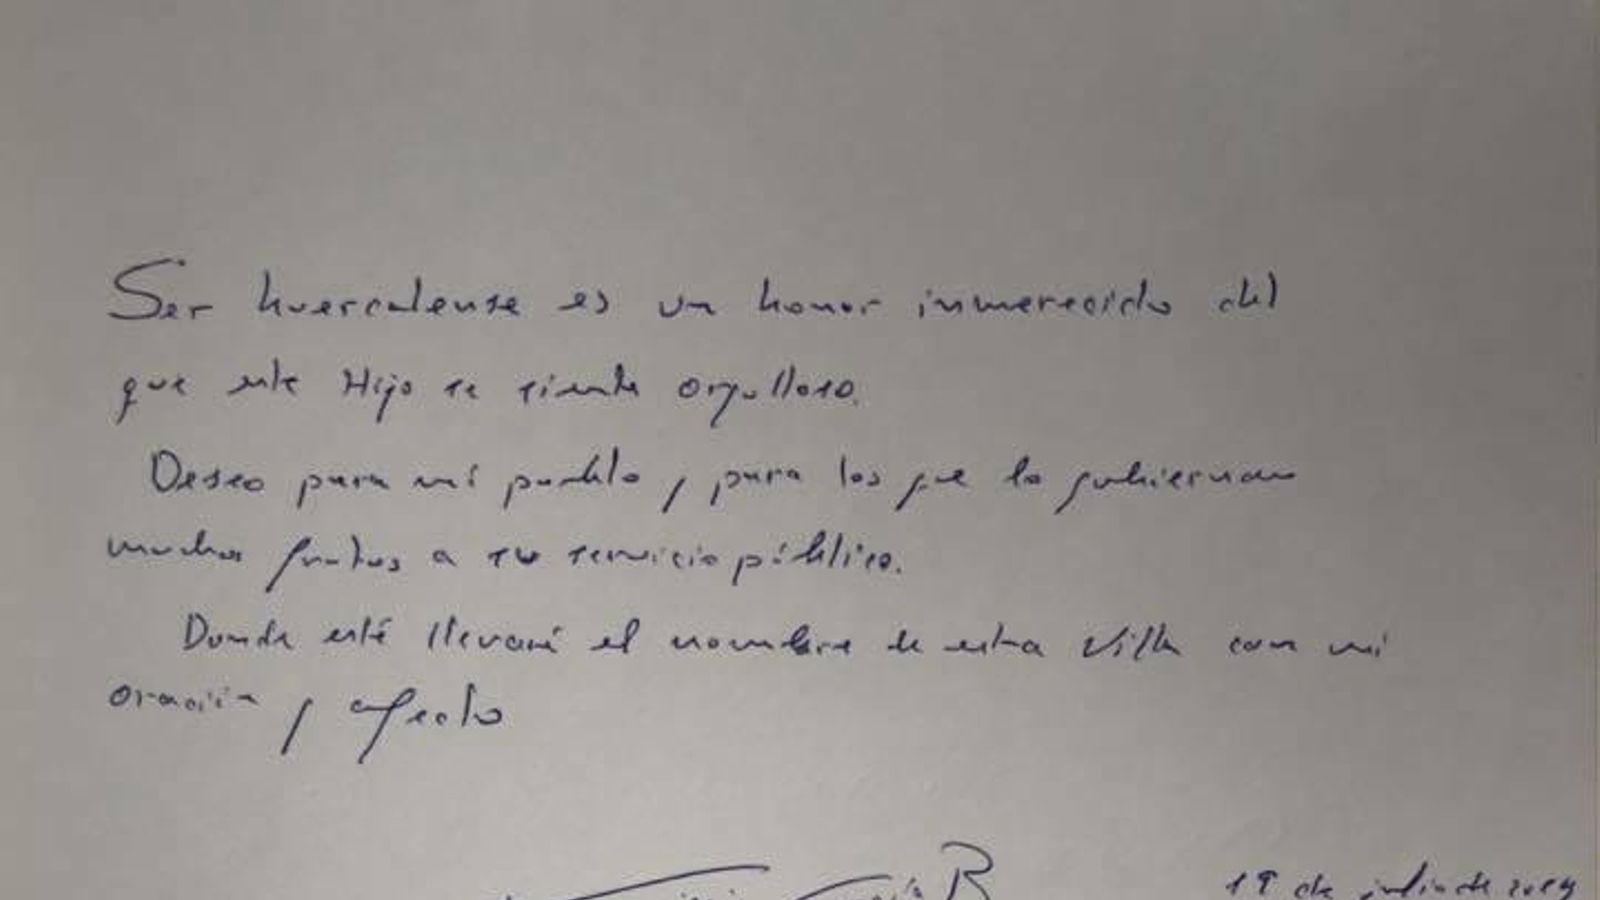 Ser huercalense es un honor inmerecido del
que este Hijo se siente orgulloso.
Deseo para mi pueblo y para los que lo gobiernan
muchos frutos a su servicio público.
Donde esté llevaré el nombre de esta Villa con mi
oración y afecto
19 de julio de 2019